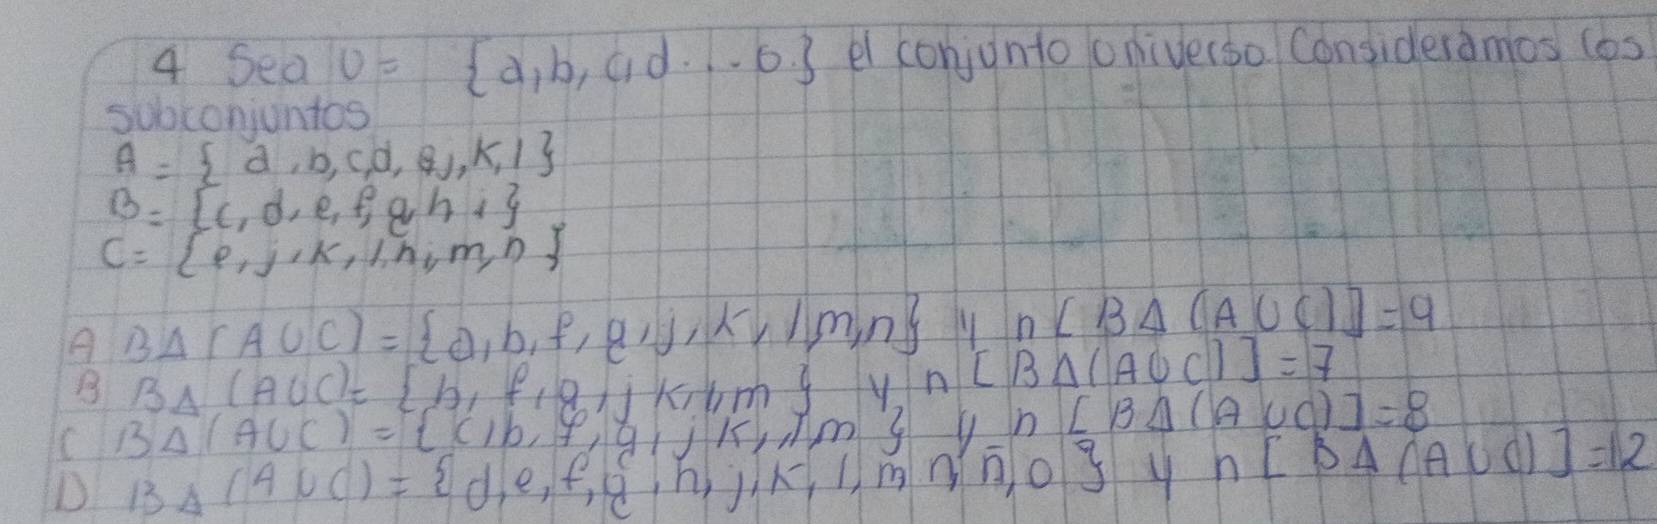 4 Sea U = {a, b, c, d...o.} el conjunto universo. Consideramos los
subconjuntos
A = { a, b, c, d, e, j, K, l }
B = {c, d, e, f, g, h, i }
C = {e, j, K, l, h, i, m, n }
A B∆(AUC) = {a, b, f, g, j, K, l, m, n} y n[B∆(AUC)] = 9
B B∆(AUC) = {b, f, g, j, K, l, m } y n[B∆(AUC)] = 7
C B∆(AUC) = {c, b, f, g, j, K, l, m } y n[B∆(AUC)] = 8
D B∆(AUC) = {d, e, f, g, h, j, K, l, m, n, ñ, o } y n[B∆(AUC)] = 12